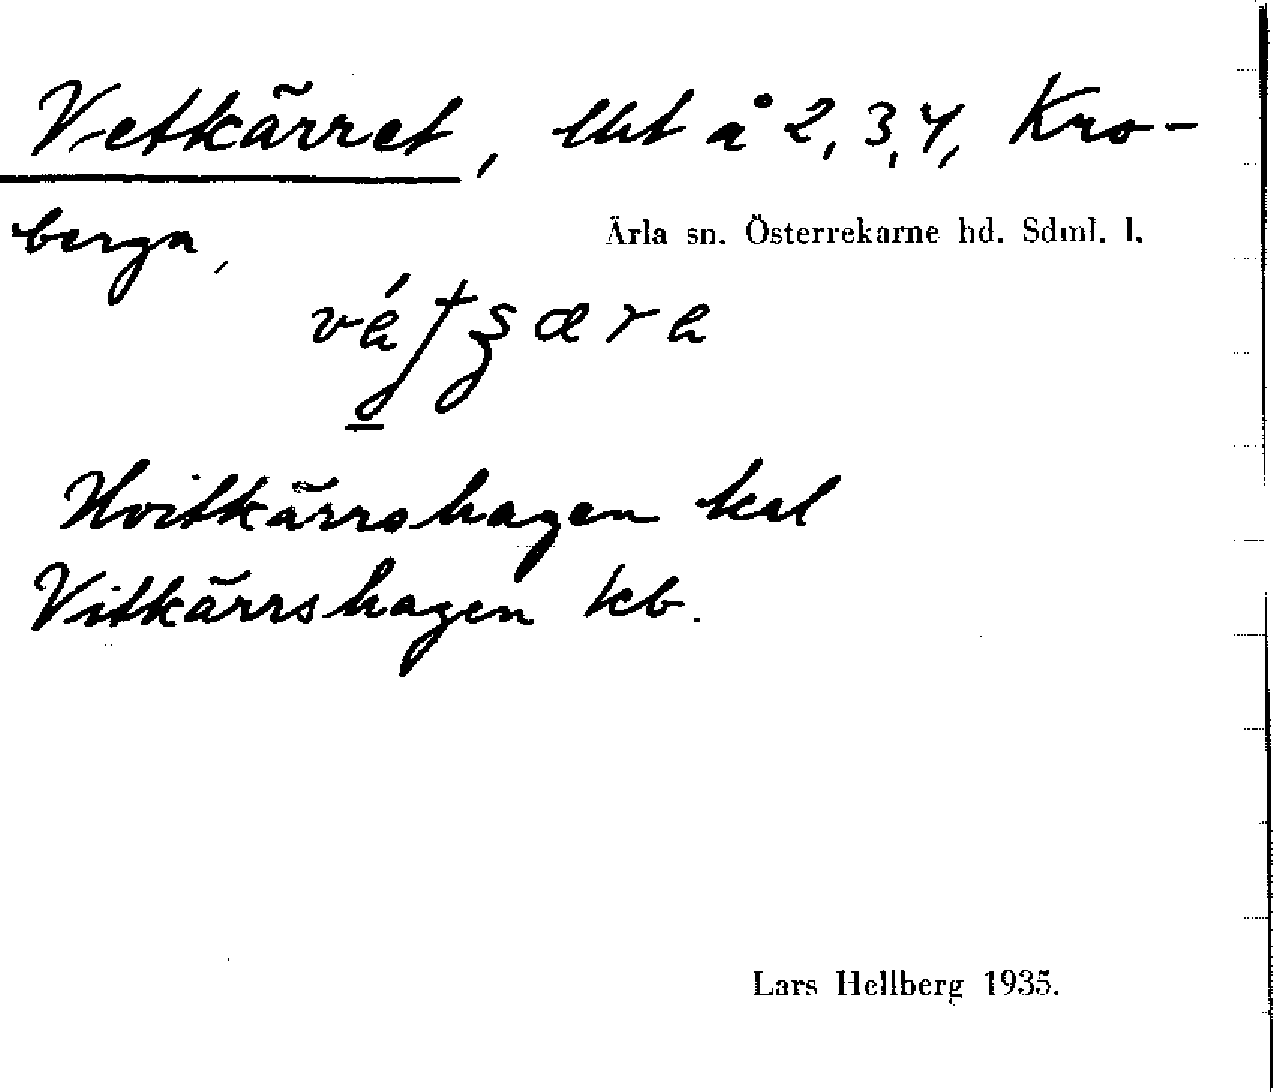 Vetkärret, tht å 2, 3, 4, Kro-
berga,
Ärla sn. Österrekarne hd. Sdml. l.
Hvitkärrshagen kal
Vitkärrshagen kb.
Lars Hellberg 1935.